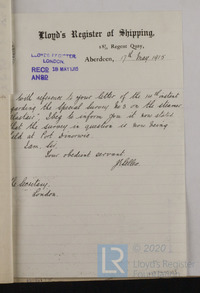 Lloyd's Register of Shipping,
18/2 Regent Quay,
Aberdeen, 17th May 1915
LLOYD'S REGISTER,
LONDON.
RECD 18 MAY 1915
ANS2
With reference to your letter of the 10th instant
regarding the special survey No 2 on the steamer
I beg to inform you it now stated
that the survey in question is now being
held at Port Dinorwic.
I am, Sir,
Your obedient servant
The Secretary
London.
© 2020
LR
Lloyd's Register
Foundation